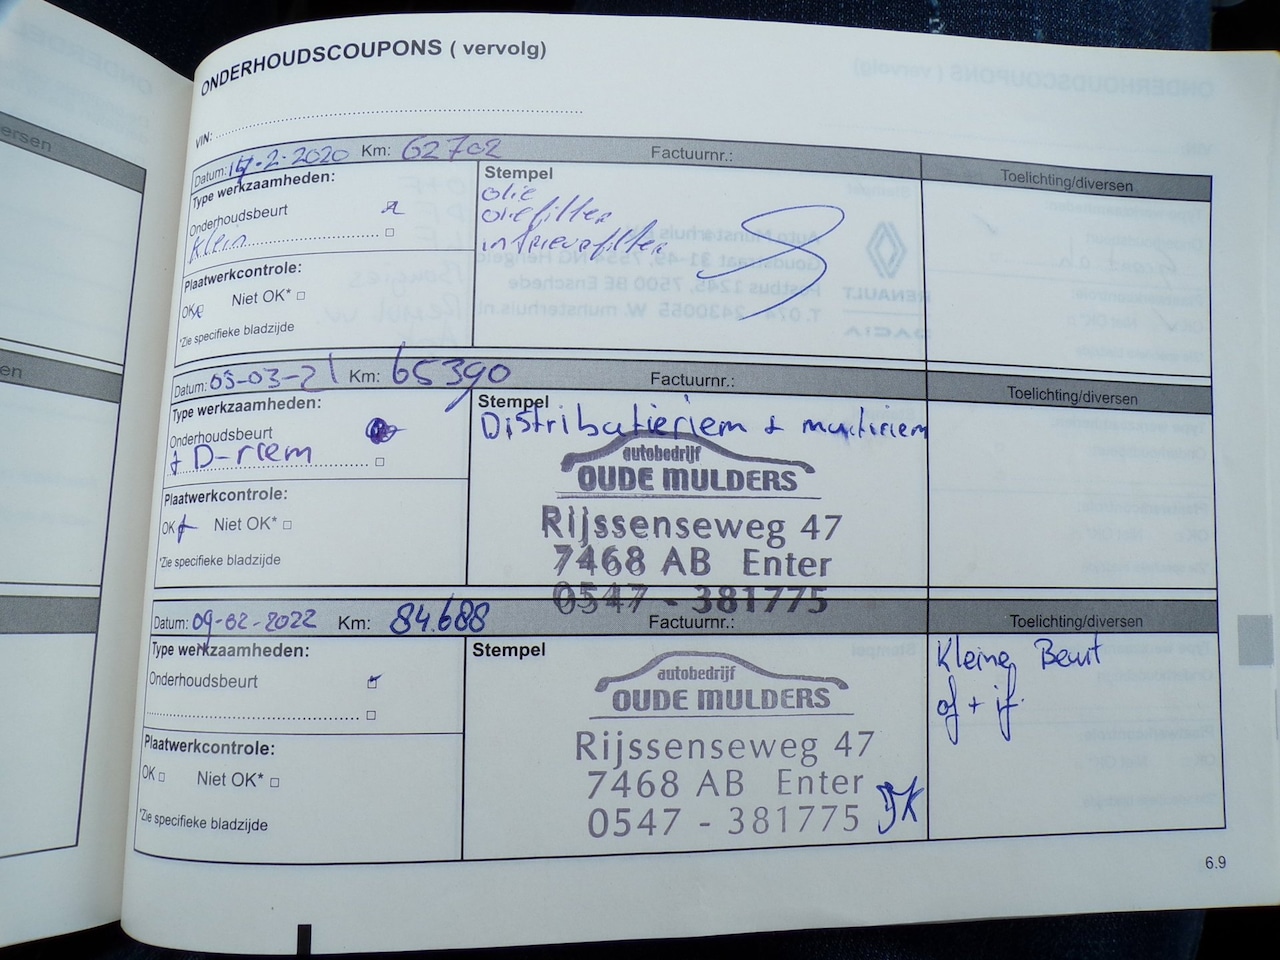 ONDERHOUDSCOUPONS ( vervolg)
VIN:
Datum: 17-2-2020 Km: 62702 Factuurnr.: Toelichting/diversen
Type werkzaamheden:
Onderhoudsbeurt
Klein
Plaatwerkcontrole:
OK Niet OK*
*Zie specifieke bladzijde
Stempel
olie
oliefilter
interieurfilter
Datum: 03-03-21 Km: 65390 Factuurnr.: Toelichting/diversen
Type werkzaamheden:
Onderhoudsbeurt
+ D-riem
Plaatwerkcontrole:
OK Niet OK*
*Zie specifieke bladzijde
Stempel
Distributieriem + multiriem
autobedrijf
OUDE MULDERS
Rijssenseweg 47
7468 AB Enter
0547 - 381775
Datum: 09-02-2022 Km: 84.688 Factuurnr.: Toelichting/diversen
Type werkzaamheden:
Onderhoudsbeurt
Plaatwerkcontrole:
OK Niet OK*
*Zie specifieke bladzijde
Stempel
autobedrijf
OUDE MULDERS
Rijssenseweg 47
7468 AB Enter
0547 - 381775
Kleine Beurt
of + if.
6.9